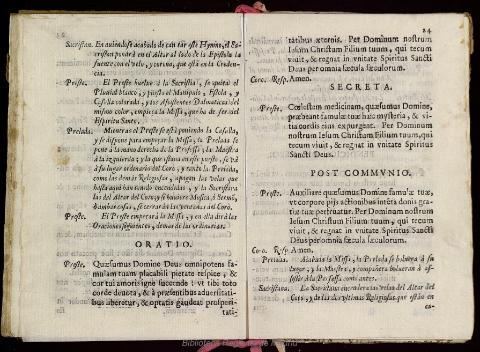 Sacristan. En auiendose acabado de cantar este Hymno, el Sa-
cristan pondrà en el Altar al lado de la Epistola la
fuente con el velo, y corona, que està en la Creden-
cia.
Preste. El Preste bueluе a la Sacristia, se quita el
Pluuial blanco, y puesto el Manipulo, Estola, y
Casulla colorada, y los Assistentes Dalmaticas del
mismo color, empieça la Missa, que ha de ser del
Espiritu Santo.
Prelada. Mientras el Preste se està poniendo la Casulla,
y se dispone para empezar la Missa, la Prelada se
pone a la mano derecha de la Professa, y la Maestra
à la izquierda; y las que estauan en este puesto, se và
à su lugar ordinario del Coro, y tanto la Prelada,
como las demàs Religiosas, apagan las velas que
hasta aqui han tenido encendidas, y la Sacristana
las del Altar del Coro, y si huuiere Musica, ò Sermõ,
ò ambas cosas, se cerraràn las ventanas del Coro.
Preste. El Preste empezarà la Missa, y en ella dirà las
Oraciones siguientes, demas de las ordinarias.
ORATIO.
Preste. Quæsumus Domine Deus omnipotens fa-
mulam tuam placabili pietate respice, &
cor tui amoris igne succende: vt tibi toto
corde deuota, & à præsentibus aduersitati-
bus liberetur, & optatis gaudeat prosperi-
tati-
24
tatibus æternis. Per Dominum nostrum
Iesum Christum Filium tuum, qui tecum
viuit, & regnat in vnitate Spiritus Sancti
Deus per omnia sæcula sæculorum.
Coro. Resp. Amen.
SECRETA.
Preste. Cœlestem medicinam, quæsumus Domine,
præbeant famulæ tuæ hæc mysteria, & vi-
tia cordis eius expurgent. Per Dominum
nostrum Iesum Christum Filium tuum, qui
tecum viuit, & regnat in vnitate Spiritus
Sancti Deus.
POST COMMVNIO.
Preste. Auxiliare quæsumus Domine famulæ tuæ,
vt corpore pijs actionibus intẽta donis gra-
tiæ tuæ perfruatur. Per Dominum nostrum
Iesum Christum Filium tuum, qui tecum
viuit, & regnat in vnitate Spiritus Sancti
Deus per omnia sæcula sæculorum.
Coro. Resp. Amen.
Prelada. Acabada la Missa, la Prelada se bolverà à su
lugar, y la Maestra, y compañera bolueran à as-
sistir à la Professa como antes.
Sacristana. La Sacristana encenderà las velas del Altar del
Coro, y de las dos vltimas Religiosas que están en
ca-
Biblioteca Regional de Madrid